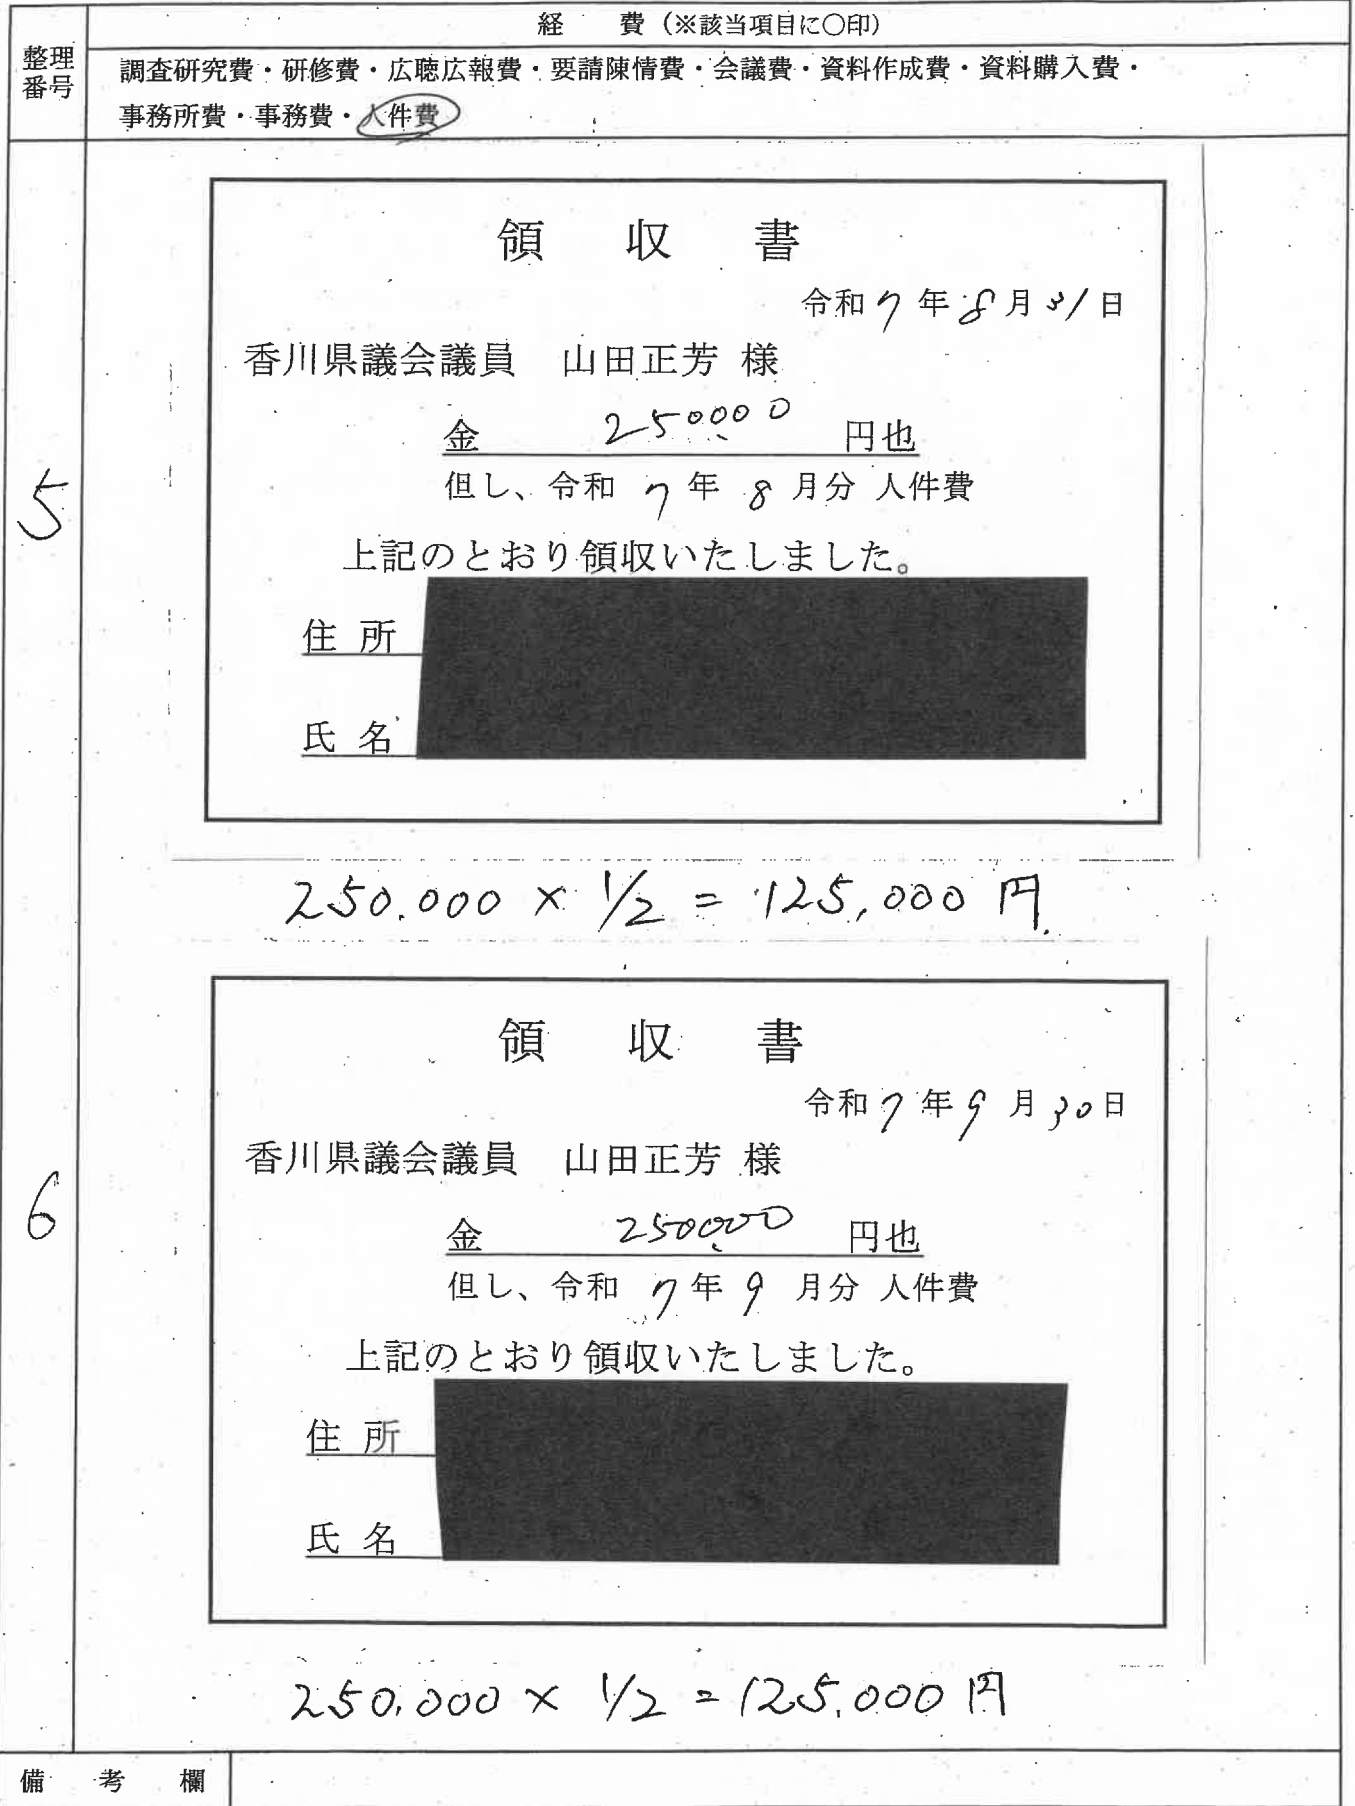 経　費（※該当項目に〇印）
整理
番号
調査研究費・研修費・広聴広報費・要請陳情費・会議費・資料作成費・資料購入費・
事務所費・事務費・人件費
5
領　収　書
令和7年8月31日
香川県議会議員　山田正芳 様
金　250000　円也
但し、令和 7年 8 月分 人件費
上記のとおり領収いたしました。
住 所
氏 名
250.000 × 1/2 = 125,000 円.
6
領　収　書
令和7年9月30日
香川県議会議員　山田正芳 様
金　250000　円也
但し、令和 7年 9 月分 人件費
上記のとおり領収いたしました。
住 所
氏 名
250,000 × 1/2 = 125,000 円
備　考　欄